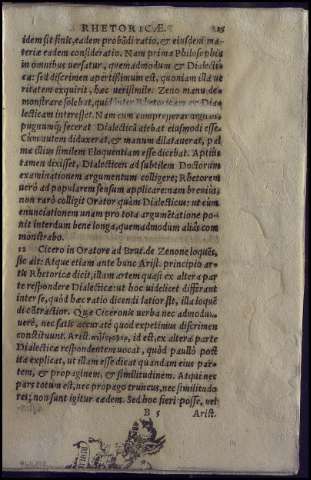 RHETORICÆ. 25
idem sit finis, eadem probãdi ratio, & eiusdem ma-
teriæ eadem consideratio. Nam prima Philosophia
in omnibus versatur, quemadmodum & Dialecti-
ca: sed discrimen apertissimum est, quoniam illa ut
ritatem exquirit, hæc uerisimile. Zeno manu de-
monstrare solebat, quid inter Rhetoricam & Dia-
lecticam interesset. Nam cum compresserat digitos
pugnumq; fecerat Dialecticã aiebat eiusmodi esse.
Cum autem diduxerat, & manum dilatauerat, pal-
mæ illius similem Eloquentiam esse dicebat. Aptius
tamen dixisset, Dialecticen ad subtilem Doctorum
examinationem argumentum colligere; Rhetorem
uerò ad popularem sensum applicare: nam breuius
non rarò colligit Orator quàm Dialecticus: ut cum
enunciationem unam pro tota argumẽtatione po-
nit interdum bene longa, quemadmodum aliàs com
monstrabo.
Cicero in Oratore ad Brut. de Zenone loquẽs,
sic ait: Atque etiam ante hunc Arist. principio ar-
tis Rhetoricæ dicit, illam artem quasi ex altera par
te respondere Dialecticæ: ut hoc uidelicet differant
inter se, quòd hæc ratio dicendi latior sit, illa loquẽ
di cõtractior. Quæ Ciceronis uerba nec admodũ
uerè, nec satis accuratè quod expetimus discrimen
constituunt. Arist. ἀντίστροφον, id est, ex altera parte
Dialecticæ respondentem uocat, quòd paulò post
ita explicat, ut illam esse dicat quandam eius par-
tem, & propaginem, & similitudinem. Atqui nec
pars totum est, nec propago truncus, nec similitudo
res; non sunt igitur eædem. Sed hoc fieri posse, uel
B 5 Arist.